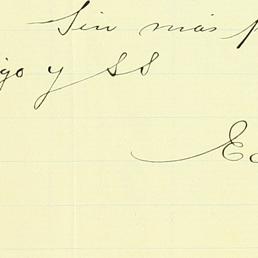 Sin más p
igo y SS
Ed